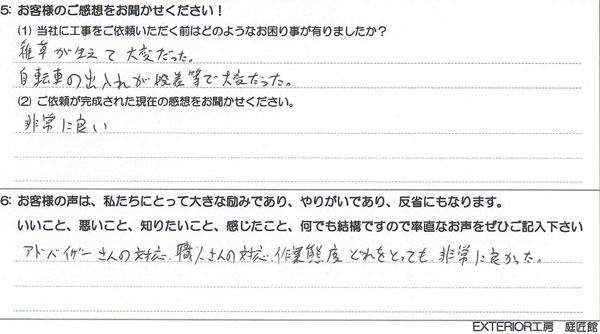 5: お客様のご感想をお聞かせください！
(1) 当社に工事をご依頼いただく前はどのようなお困り事が有りましたか？
雑草が生えて大変だった。
自転車の出入れが段差等で大変だった。
(2) ご依頼が完成された現在の感想をお聞かせください。
非常に良い
6: お客様の声は、私たちにとって大きな励みであり、やりがいであり、反省にもなります。
いいこと、悪いこと、知りたいこと、感じたこと、何でも結構ですので率直なお声をぜひご記入下さい
アドバイザーさんの対応、職人さんの対応、作業態度どれをとっても非常に良かった。
EXTERIOR工房 庭匠館